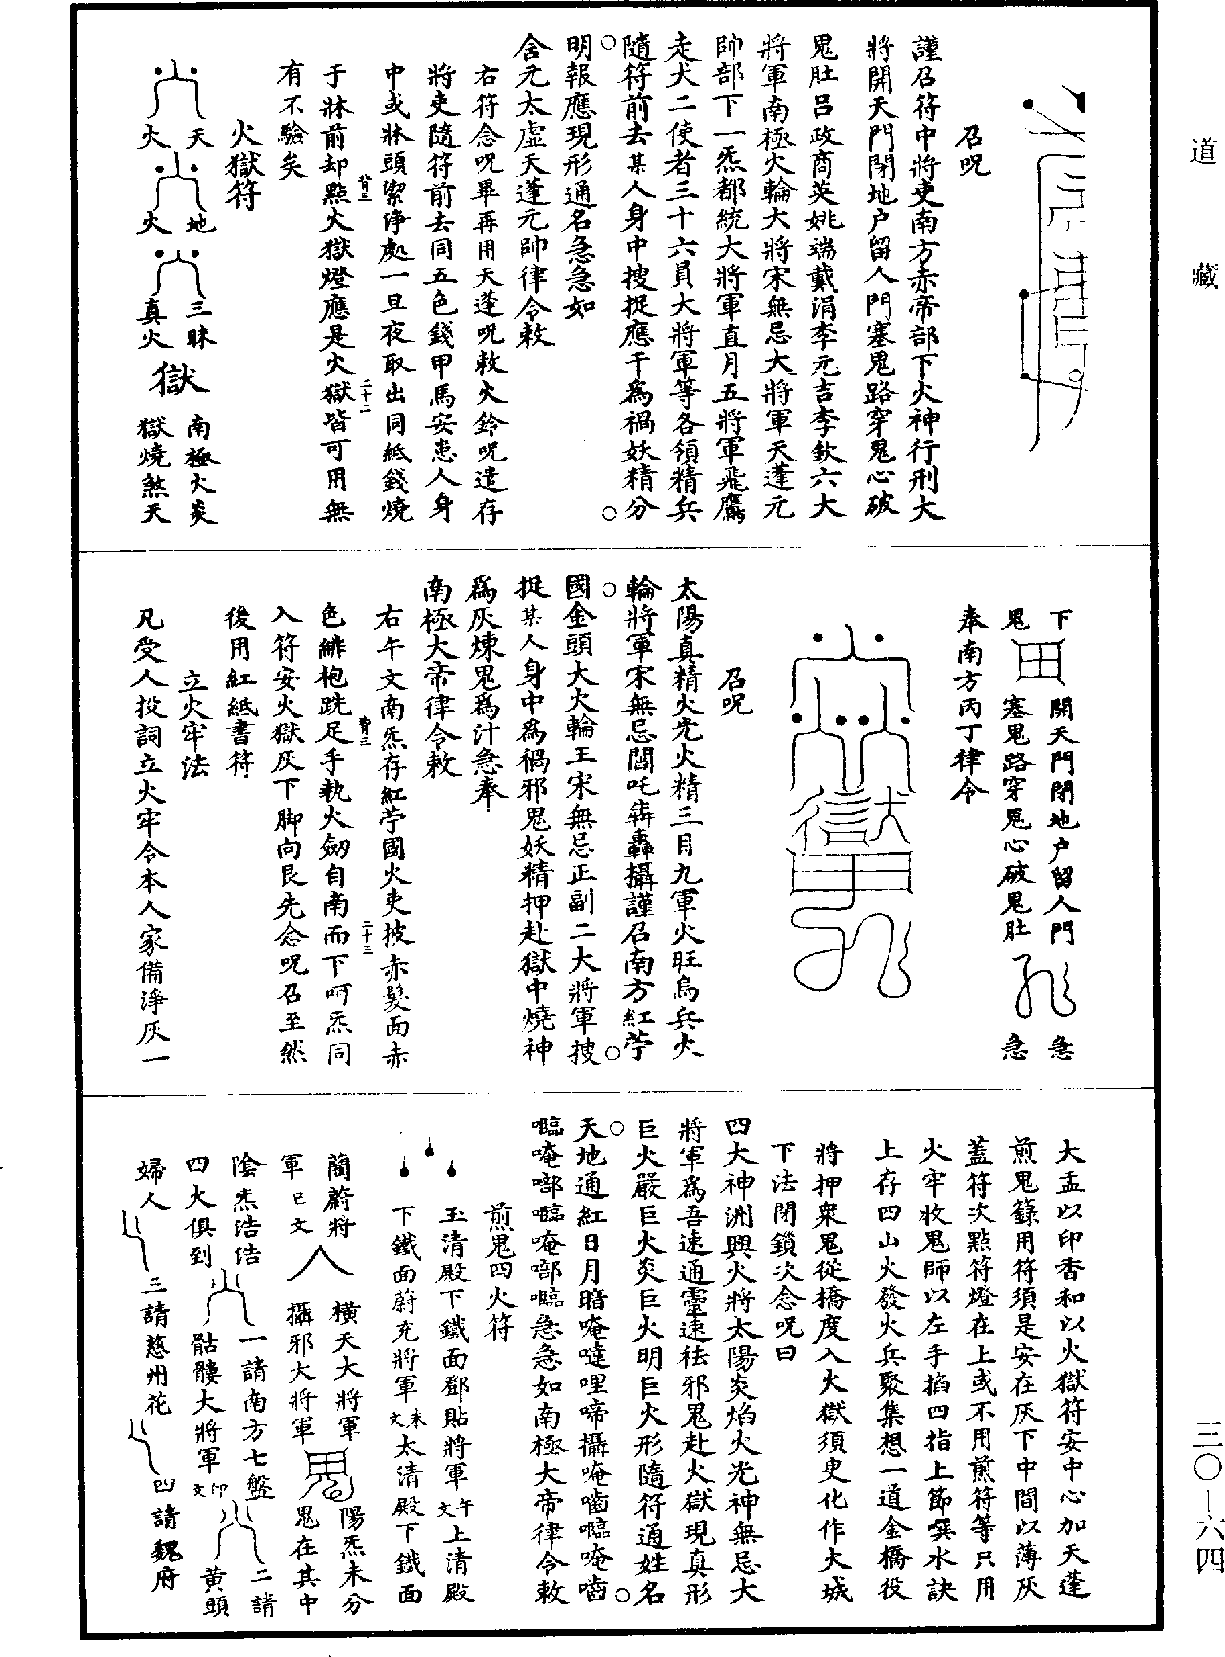 道藏
召呪
謹召符中將吏南方赤帝部下火神行刑大
將開天門閉地户留人門塞鬼路穿鬼心破
鬼肚呂政商英姚端戴涓李元吉李欽六大
將軍南極火輪大將宋無忌大將軍天蓬元
帥部下一炁都統大將軍直月五將軍飛鷹
走犬二使者三十六員大將軍等各領精兵
隨符前去某人身中搜捉應干爲禍妖精分
明報應現形通名急急如
含元太虚天蓬元帥律令敕
右符念呪畢再用天蓬呪敕火鈴呪遣存
將吏隨符前去同五色錢甲馬安患人身
中或牀頭潔淨處一旦夜取出同紙錢燒
于牀前却點火獄燈應是火獄皆可用無
有不驗矣
背二
二十二
火獄符
天
火
地
火
三昧
真火
獄
南極火炎
獄燒煞天
下
鬼
開天門閉地户留人門
塞鬼路穿鬼心破鬼肚
急
急
奉南方丙丁律令
召呪
太陽真精火光火精三月九軍火旺烏兵火
輪將軍宋無忌閶吒犇轟攝謹召南方紅苧
國金頭大火輪王宋無忌正副二大將軍搜
捉某人身中爲禍邪鬼妖精押赴獄中燒神
爲灰煉鬼爲汁急奉
南極大帝律令敕
右午文南炁存紅苧國火吏披赤髮面赤
色緋袍跣足手執火劒自南而下呵炁同
入符安火獄灰下脚向艮先念呪召至然
後用紅紙書符
背三
二十三
立火牢法
凡受人投詞立火牢令本人家備淨灰一
大盂以印香和以火獄符安中心加天蓬
煎鬼籙用符須是安在灰下中間以薄灰
蓋符次點符燈在上或不用煎符等只用
火牢收鬼師以左手掐四指上節噀水訣
上存四山火發火兵聚集想一道金橋役
將押衆鬼從橋度入火獄須臾化作大城
下法閉鎖次念呪曰
四大神洲興火將太陽炎焰火光神無忌大
將軍爲吾速通靈速祛邪鬼赴火獄現真形
巨火嚴巨火炎巨火明巨火形隨符通姓名
天地通紅日月暗唵噠哩啼攝唵嚙𠼖唵嚙
𠼖唵㗙𠼖唵㗙𠼖急急如南極大帝律令敕
煎鬼四火符
玉清殿下鐵面鄧貼將軍午文上清殿
下鐵面蔚充將軍未文太清殿下鐵面
藺蔚將
軍巳文
橫天大將軍
攝邪大將軍
陽炁未分
鬼在其中
陰炁浩浩
四火俱到
一請南方七盤
骷髏大將軍印文
二請
黄頭
婦人
三請慈州花
四請魏府
三〇—六四